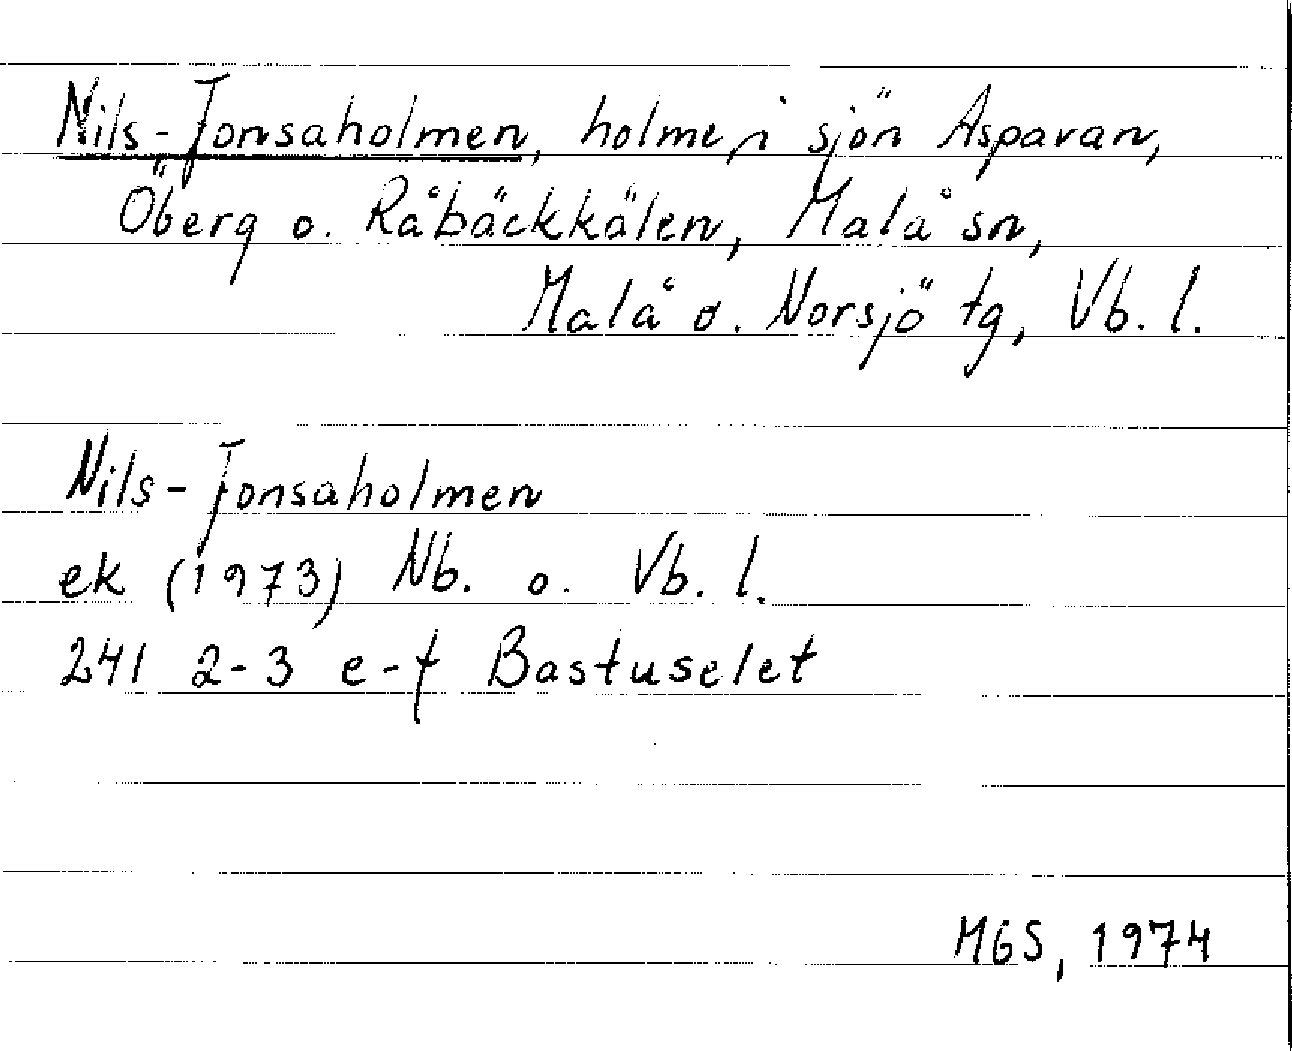 Nils-Jonsaholmen, holme i sjön Aspavan,
Öberg o. Råbäckkälen, Malå sn,
Malå o. Norsjö tg, Vb. l.
Nils-Jonsaholmen
ek (1973) Nb. o. Vb. l.
241 2-3 e-f Bastuselet
MGS, 1974